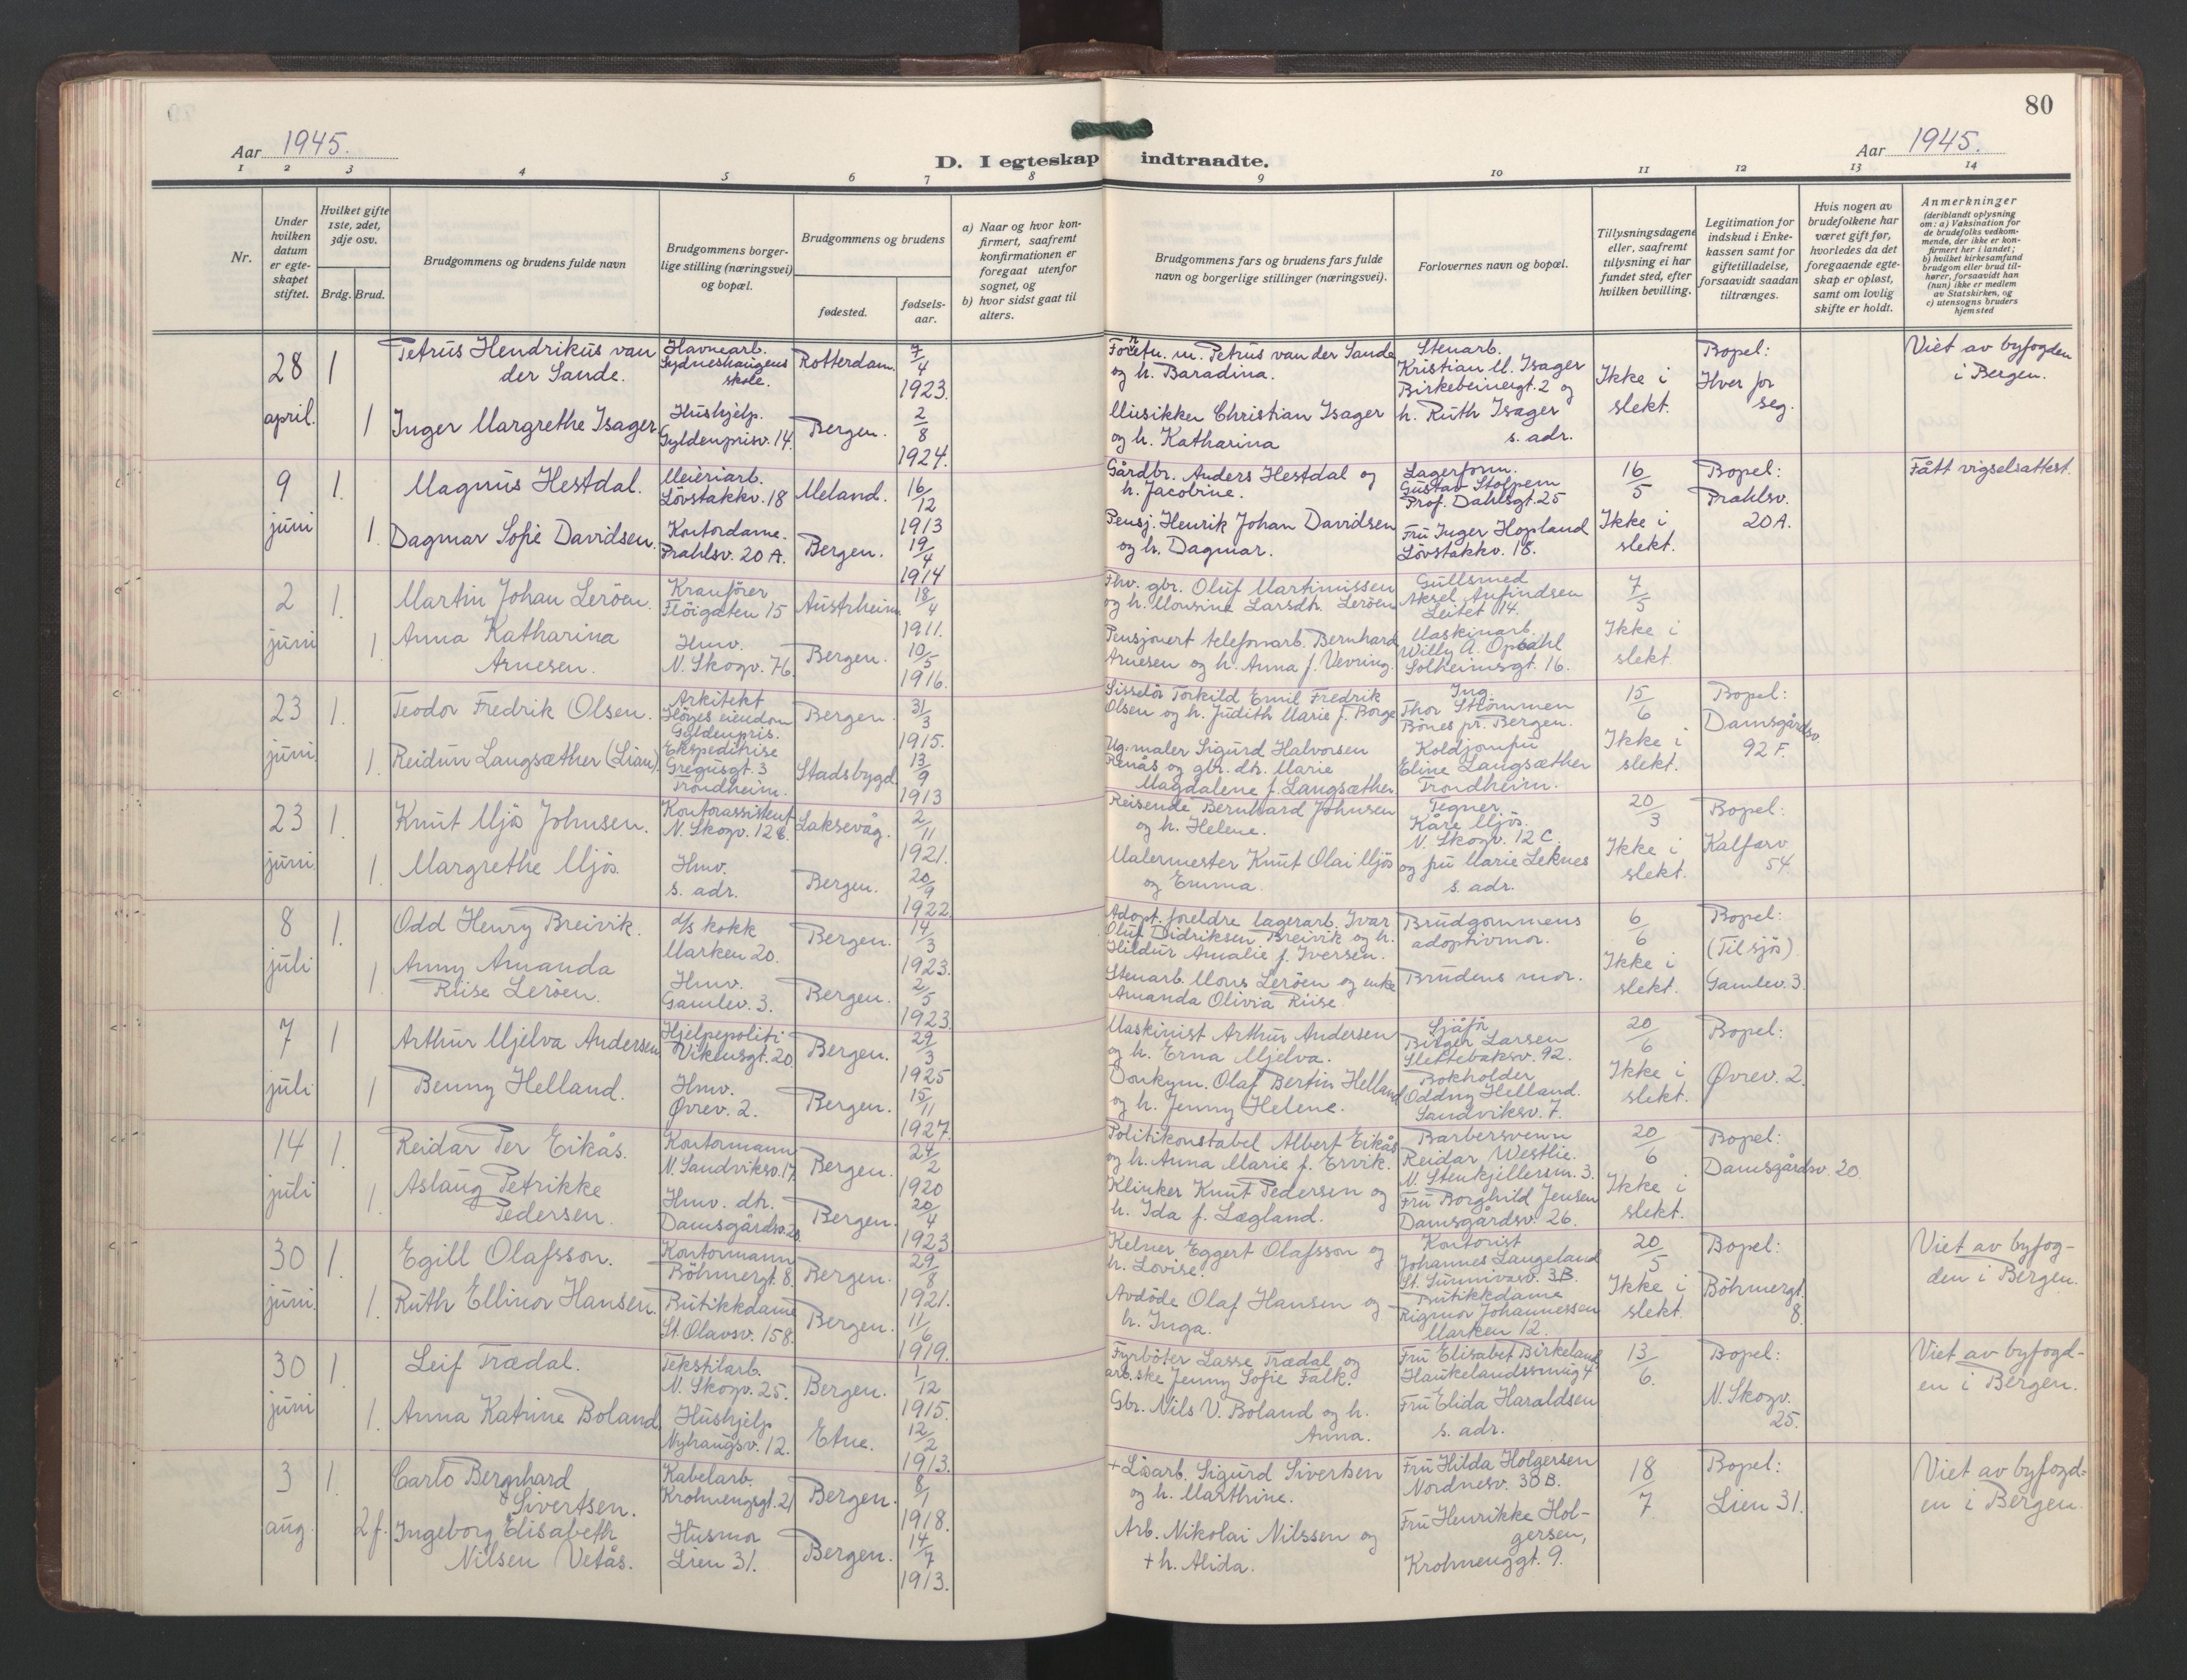 80
Aar 1945.
D. I egteskap indtraadte.
Aar 1945.
1 2 3 4 5 6 7 8 9 10 11 12 13 14
Nr.
Under hvilken datum er egteskapet stiftet.
Hvilket gifte 1ste, 2det, 3dje osv.
Brdg. Brud.
Brudgommens og brudens fulde navn
Brudgommens borgerlige stilling (næringsvei) og bopæl.
Brudgommens og brudens
fødested.
fødselsaar.
a) Naar og hvor konfirmert, saafremt konfirmationen er foregaat utenfor sognet, og
b) hvor sidst gaat til alters.
Brudgommens fars og brudens fars fulde navn og borgerlige stillinger (næringsvei).
Forlovernes navn og bopæl.
Tillysningsdagene eller, saafremt tillysning ei har fundet sted, efter hvilken bevilling.
Legitimation for indskud i Enkekassen samt for giftetilladelse, forsaavidt saadan tiltrænges.
Hvis nogen av brudefolkene har været gift før, hvorledes da det foregaaende egteskap er opløst, samt om lovlig skifte er holdt.
Anmerkninger
(deriblandt oplysning om: a) Vaksination for de brudefolks vedkommende, der ikke er konfirmert her i landet;
b) hvilket kirkesamfund brudgom eller brud tilhører, forsaavidt han (hun) ikke er medlem av Statskirken, og
c) utensogns bruders hjemsted
28 april. 1
Petrus Hendrikus van der Sande.
Havnearb. Sydneshaugens skole.
Rotterdam. 7/4 1923.
m. Petrus van der Sande og h. Baradina.
Stenarb. Kristian M. Isager Birkebeinergt. 2 og
Ikke i slekt.
Bopel: Hver for seg.
Viet av byfogden i Bergen.
1 Inger Margrethe Isager
Hushjelp. Gyldenprisv. 14.
Bergen. 2/8 1924.
Musikker Christian Isager og h. Katharina
h. Ruth Isager s. adr.
9 juni 1.
Magnus Hestdal.
Meieriarb. Løvstakkv. 18
Meland. 16/12 1913
Gårdbr. Anders Hestdal og h. Jacobine.
Lagerform. Gustav Stolpem Prof. Dahlsgt. 25
16/5 Ikke i slekt.
Bopel: Prahlsv. 20A.
Fått vigselsattest.
1. Dagmar Sofie Davidsen.
Kontordame. Prahlsv. 20 A.
Bergen. 19/4 1914
Pensj. Henrik Johan Davidsen og h. Dagmar.
Fru Inger Hopland Løvstakkv. 18.
2 juni 1.
Martin Johan Lerøen.
Kranfører Fløigaten 15
Austrheim 18/4 1911.
Fhv. gbr. Oluf Martinussen og h. Monsine Larsdtr. Lerøen
Gullsmed Aksel Anfindsen Leitet 14.
7/5 Ikke i slekt
1. Anna Katharina Arnesen.
Hmv. N. Skogv. 76.
Bergen. 10/5 1916.
Pensjonert telefonarb. Bernhard Arnesen og h. Anna f. Vevring.
Maskinarb. Willy A. Opdahl Solheimsgt. 16.
23 juni 1.
Teodor Fredrik Olsen.
Arkitekt Fløyes eiendom Gyldenpris.
Bergen. 31/3 1915.
Torkild Emil Fredrik Olsen og h. Judith Marie f. Borge
Ing. Thor Strømmen Bønes pr. Bergen.
15/6 Ikke i slekt.
Bopel: Damsgårdsv. 92 F.
1. Reidun Langsæther (Lian)
Ekspeditrise Gregusgt. 3 Trondheim.
Stadsbygd 13/9 1913
maler Sigurd Halvorsen Renås og gbr. dtr. Marie Magdalene f. Langsæther
Koldjomfru Eline Langsæther Trondheim.
23 juni 1.
Knut Mjøs Johnsen.
Kontorassistent N. Skogv. 12 C.
Laksevåg. 2/11 1921.
Reisende Bernhard Johnsen og h. Helene.
Tegner Kåre Mjøs. N. Skogv. 12 C.
20/3 Ikke i slekt.
Bopel: Kalfarv. 54.
1. Margrethe Mjøs.
Hmv. s. adr.
Bergen. 20/9 1922.
Malermester Knut Olai Mjøs og Emma.
og fru Marie Leknes s. adr.
8 juli 1.
Odd Henry Breivik.
d/s kokk Marken 20.
Bergen. 14/3 1923.
Adopt. foreldre lagerarb. Ivar Oluf Didriksen Breivik og h. Hildur Amalie f. Iversen.
Brudgommens adoptivmor.
6/6 Ikke i slekt.
Bopel: (Til sjøs) Gamlev. 3.
1 Anny Amanda Riise Lerøen.
Hmv. Gamlev. 3.
Bergen. 2/5 1923.
Stenarb. Mons Lerøen og enke Amanda Olivia Riise
Brudens mor.
7 juli 1
Arthur Mjelva Andersen
Hjelpepoliti Vikensgt. 20
Bergen. 29/3 1925
Maskinist Arthur Andersen og h. Erna Mjelva.
Sjåfør Birger Larsen Slettebaksv. 92.
20/6 Ikke i slekt.
Bopel: Øvrev. 2.
1 Benny Helland.
Hmv. Øvrev. 2.
Bergen. 15/11 1927.
Donkym. Olaf Bertin Helland og h. Jenny Helene.
Bokholder Oddny Helland. Sandviksv. 7.
14 juli 1.
Reidar Per Eikås.
Kontormann N. Sandviksv. 17.
Bergen. 24/2 1920
Politikonstabel Albert Eikås og h. Anna Marie f. Ervik.
Barbersvenn Reidar Westlie. N. Stenkjellersm. 3.
20/6 Ikke i slekt.
Bopel: Damsgårdsv. 20
1. Aslaug Petrikke Pedersen.
Hmv. dtr. Damsgårdsv. 20.
Bergen. 20/4 1923.
Klinker Knut Pedersen og h. Ida f. Lægland.
Fru Borghild Jensen Damsgårdsv. 26.
30 juni 1.
Egill Olafsson.
Kontormann Böhmergt. 8.
Bergen. 29/8 1921.
Kelner Eggert Olafsson og h. Lovise.
Kontorist Johannes Langeland St. Sunnivasv. 3B.
20/5 Ikke i slekt.
Bopel: Böhmergt. 8.
Viet av byfogden i Bergen.
1. Ruth Ellinor Hansen.
Butikkdame St. Olavsv. 158.
Bergen. 11/6 1919.
Avdøde Olaf Hansen og h. Inga.
Butikkdame Rigmor Johannessen Marken 12.
30 juni 1.
Leif Trædal.
Tekstilarb. N. Skogv. 25.
Bergen. 1/12 1915.
Fyrbøter Lasse Trædal og arb.ske Jenny Sofie Falk.
Fru Elisabet Birkeland Haukelandssmug 4
13/6.
Bopel: N. Skogv. 25.
Viet av byfogden i Bergen.
1. Anna Katrine Boland
Hushjelp Nyhaugsv. 12.
Etne. 12/2 1913.
Gbr. Nils V. Boland og h. Anna.
Fru Elida Haraldsen s. adr.
3 aug. 1.
Carlo Bernhard Sivertsen.
Kabelarb. Krohnengsgt. 21
Bergen. 8/1 1918.
+ Løsarb. Sigurd Sivertsen og h. Marthine.
Fru Hilda Holgersen Nordnesv. 38 B.
18/7.
Bopel: Lien 31.
Viet av byfogden i Bergen.
2 f. Ingeborg Elisabeth Nilsen Vetås.
Husmor Lien 31.
Bergen. 14/7 1913.
Arb. Nikolai Nilssen og + h. Alida.
Fru Henrikke Holgersen, Krohnenggt. 9.